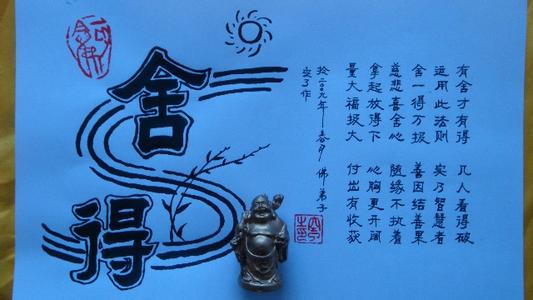 舍得
有舍才有得 几人看得破
运用此法则 实乃智慧者
舍一得万报 善因结善果
慈悲喜舍心 随缘不执着
拿起放得下 心胸更开阔
量大福报大 付出有收获
二00九年 春月 佛弟子
作